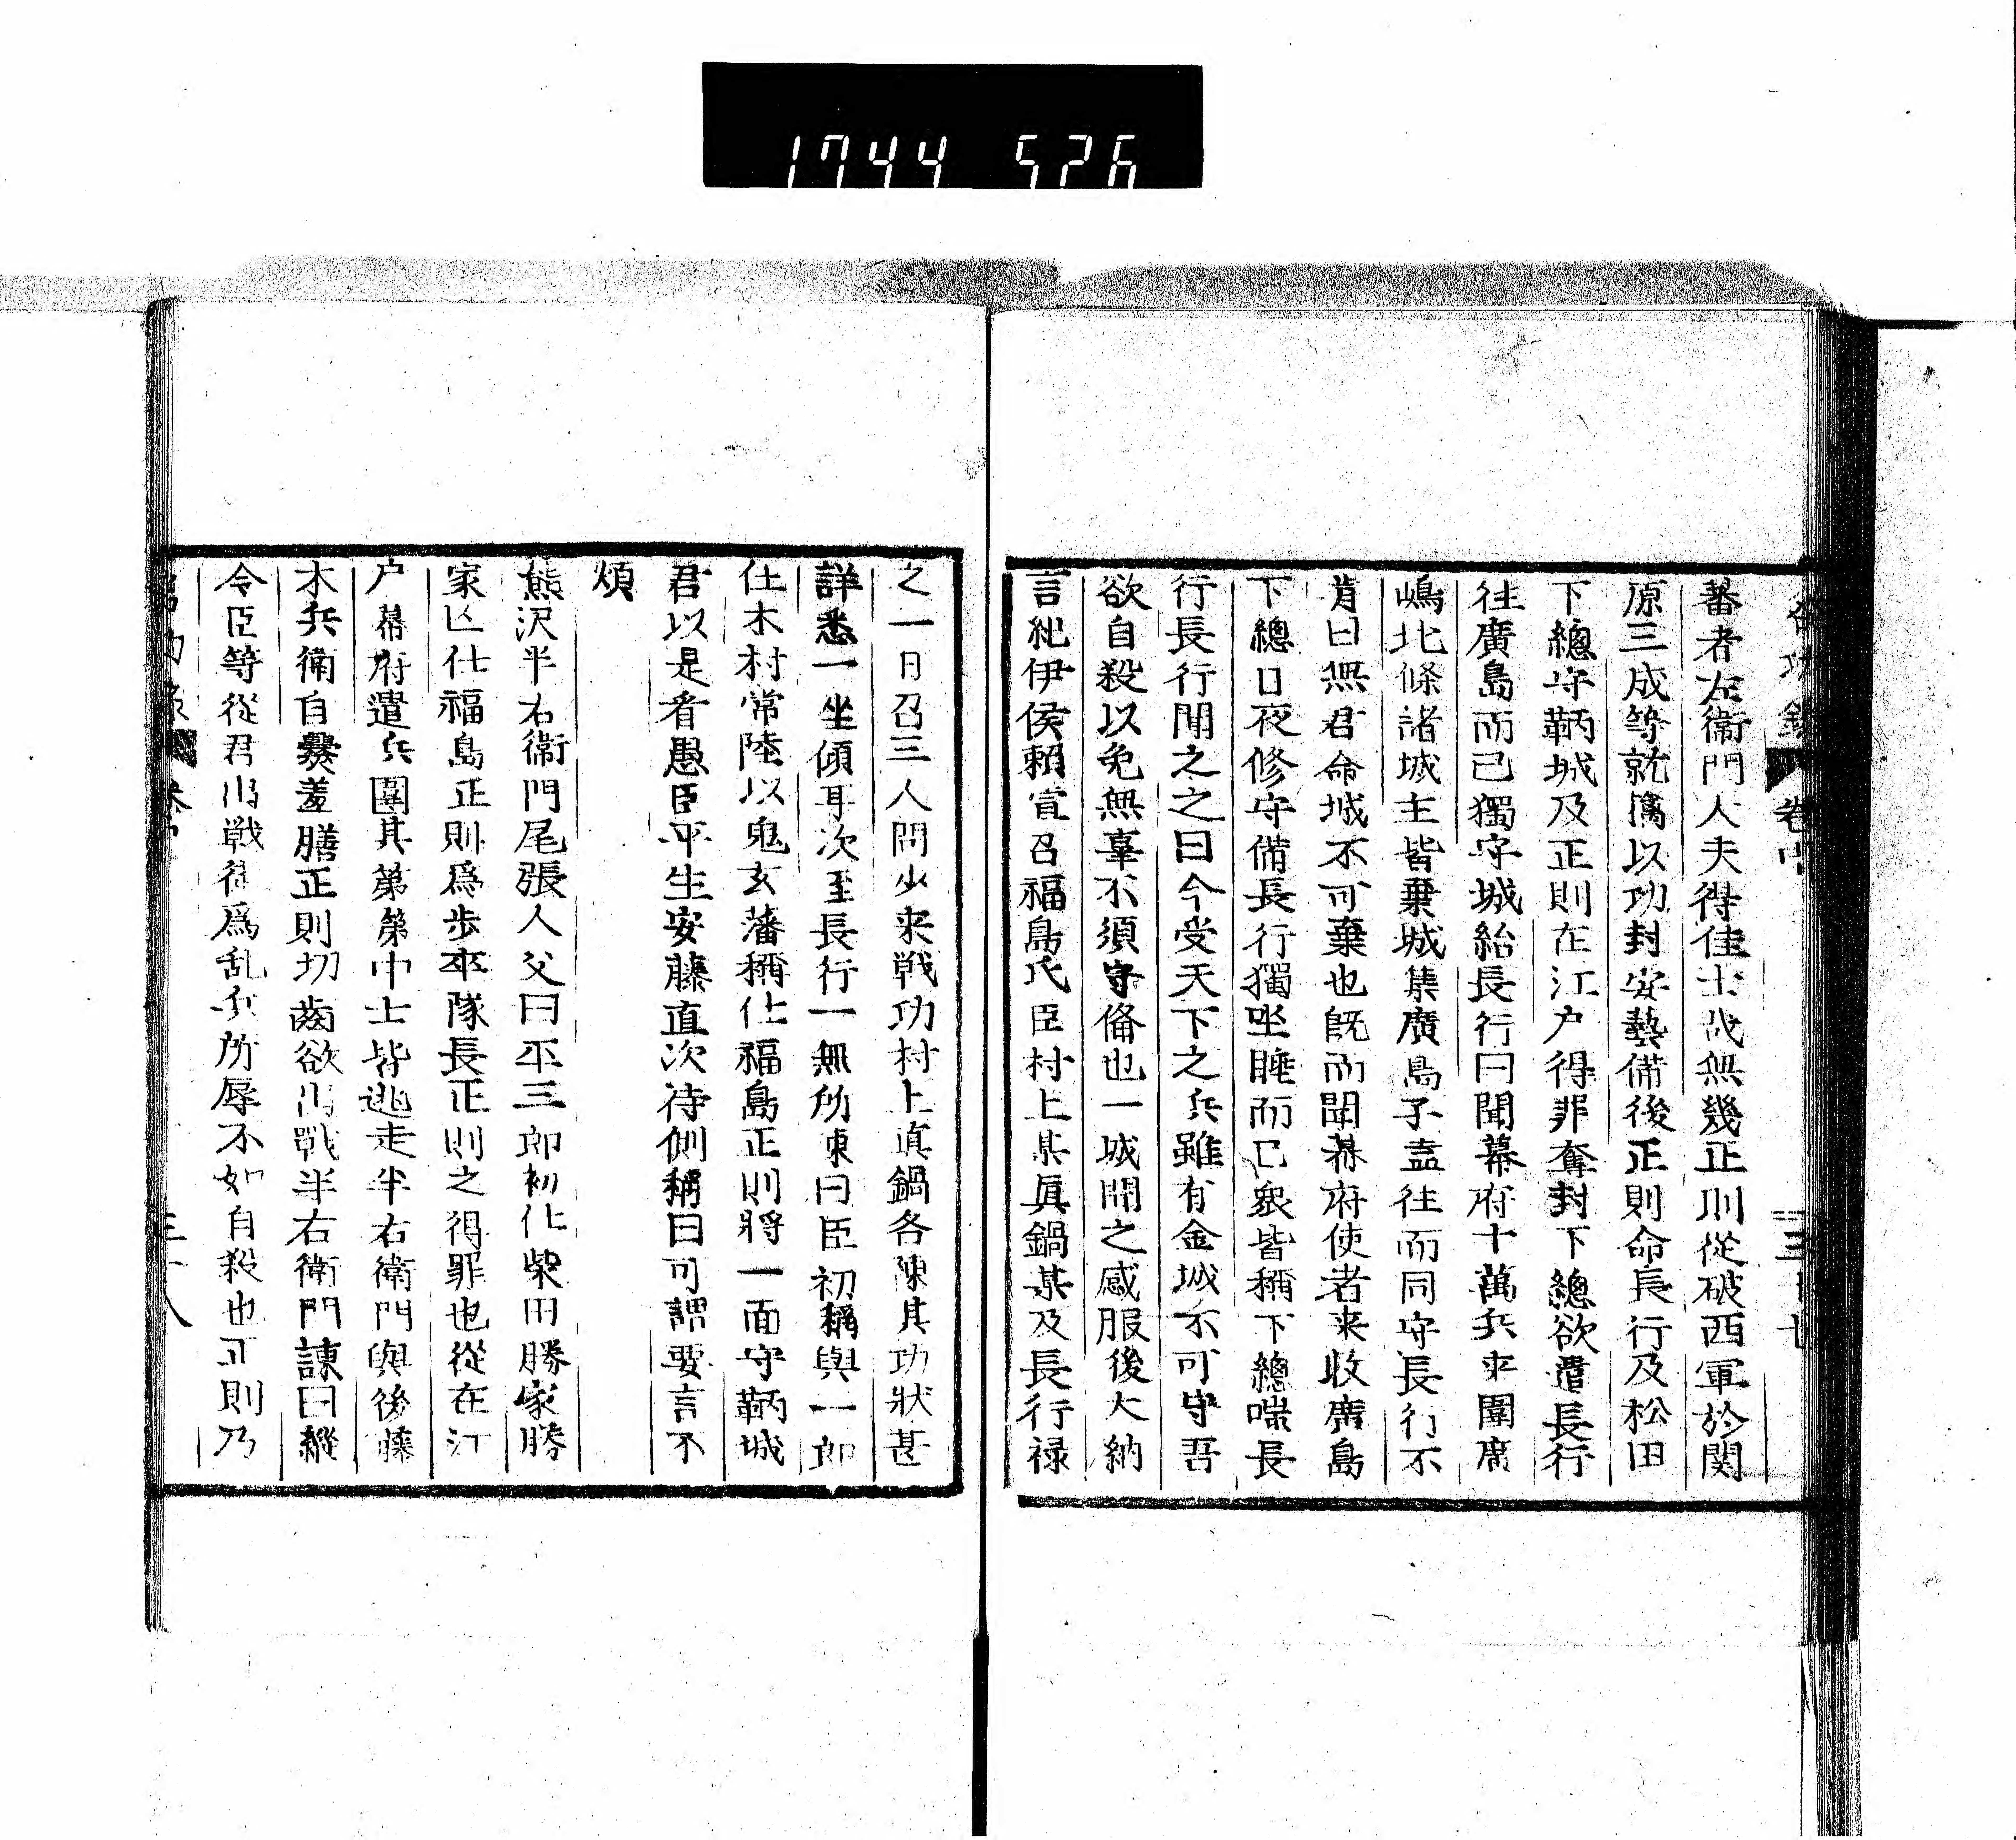 1744 526
蕃者左衛門大夫得佳士哉無幾正則從破西軍於関
原三成等就擒以功封安藝備後正則命長行及松田
下總守鞆城及正則在江户得罪奪封下總欲遣長行
往廣島而己獨守城紿長行曰聞幕府十萬兵来圍廣
嶋北條諸城主皆棄城集廣島子盍往而同守長行不
肯曰無君命城不可棄也既而聞幕府使者来收廣島
下總日夜修守備長行獨坐睡而已衆皆稱下總嗤長
行長行聞之之曰今受天下之兵雖有金城不可守吾
欲自殺以免無辜不須守俻也一城聞之感服後大納
言紀伊侯賴宣召福島氏臣村上某眞鍋某及長行禄
之一日召三人問少来戦功村上真鍋各陳其功狀甚
詳悉一坐傾耳次至長行一無所陳曰臣初稱與一郎
仕木村常陸以鬼玄蕃稱仕福島正則將一面守鞆城
君以是看愚臣平生安藤直次待側稱曰可謂要言不
煩
熊沢半右衛門尾張人父曰平三郎初仕柴田勝家勝
家亾仕福島正則爲歩卒隊長正則之得罪也從在江
户幕府遣兵圍其第第中士皆逃走半右衛門與後藤
木兵衛自爨羞膳正則切齒欲出戰半右衛門諌曰縱
令臣等從君出戦徒爲乱兵所辱不如自殺也正則乃